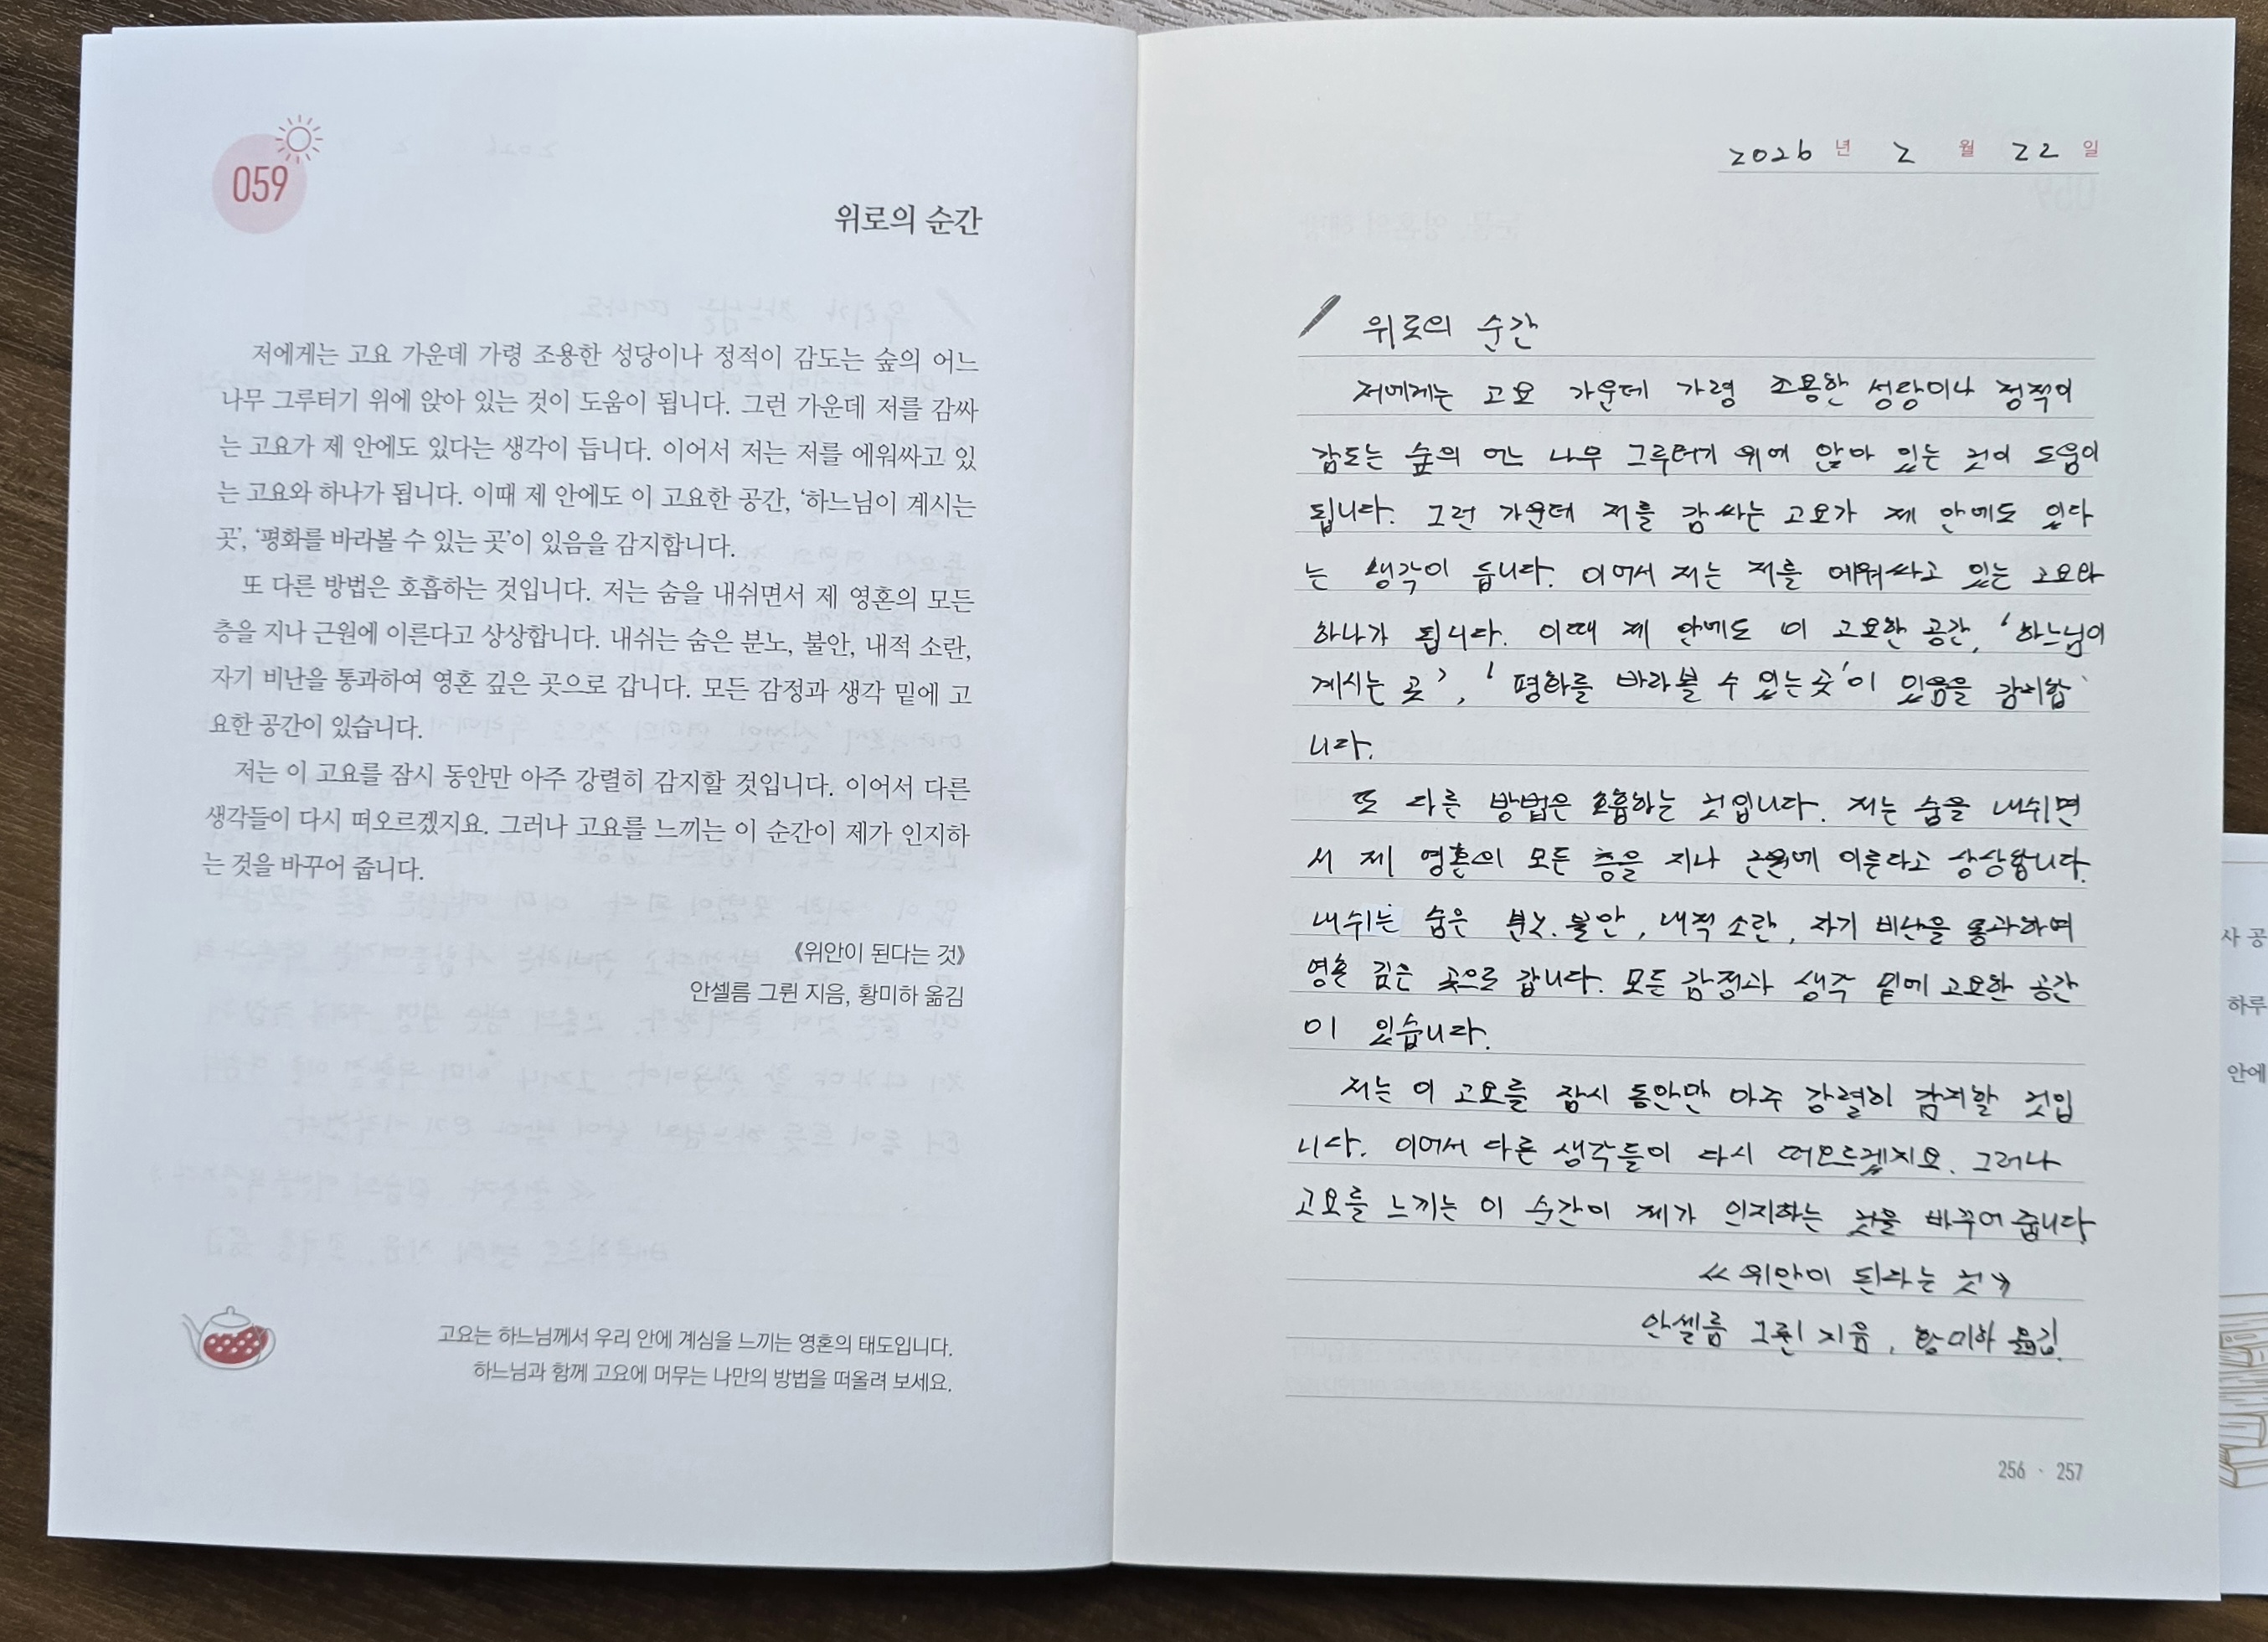 059
위로의 순간
저에게는 고요 가운데 가령 조용한 성당이나 정적이 감도는 숲의 어느
나무 그루터기 위에 앉아 있는 것이 도움이 됩니다. 그런 가운데 저를 감싸
는 고요가 제 안에도 있다는 생각이 듭니다. 이어서 저는 저를 에워싸고 있
는 고요와 하나가 됩니다. 이때 제 안에도 이 고요한 공간, ‘하느님이 계시는
곳’, ‘평화를 바라볼 수 있는 곳’이 있음을 감지합니다.
또 다른 방법은 호흡하는 것입니다. 저는 숨을 내쉬면서 제 영혼의 모든
층을 지나 근원에 이른다고 상상합니다. 내쉬는 숨은 분노, 불안, 내적 소란,
자기 비난을 통과하여 영혼 깊은 곳으로 갑니다. 모든 감정과 생각 밑에 고
요한 공간이 있습니다.
저는 이 고요를 잠시 동안만 아주 강렬히 감지할 것입니다. 이어서 다른
생각들이 다시 떠오르겠지요. 그러나 고요를 느끼는 이 순간이 제가 인지하
는 것을 바꾸어 줍니다.
《위안이 된다는 것》
안셀름 그륀 지음, 황미하 옮김
고요는 하느님께서 우리 안에 계심을 느끼는 영혼의 태도입니다.
하느님과 함께 고요에 머무는 나만의 방법을 떠올려 보세요.
2026 년 2 월 22 일
위로의 순간
저에게는 고요 가운데 가령 조용한 성당이나 정적이
감도는 숲의 어느 나무 그루터기 위에 앉아 있는 것이 도움이
됩니다. 그런 가운데 저를 감싸는 고요가 제 안에도 있다
는 생각이 듭니다. 이어서 저는 저를 에워싸고 있는 고요와
하나가 됩니다. 이때 제 안에도 이 고요한 공간, ‘하느님이
계시는 곳’, ‘평화를 바라볼 수 있는 곳’이 있음을 감지합
니다.
또 다른 방법은 호흡하는 것입니다. 저는 숨을 내쉬면
서 제 영혼의 모든 층을 지나 근원에 이른다고 상상합니다.
내쉬는 숨은 분노. 불안, 내적 소란, 자기 비난을 통과하여
영혼 깊은 곳으로 갑니다. 모든 감정과 생각 밑에 고요한 공간
이 있습니다.
저는 이 고요를 잠시 동안만 아주 강렬히 감지할 것입
니다. 이어서 다른 생각들이 다시 떠오르겠지요. 그러나
고요를 느끼는 이 순간이 제가 인지하는 것을 바꾸어 줍니다.
《위안이 된다는 것》
안셀름 그륀 지음, 황미하 옮김.
256 · 257
사 공
하루
안에